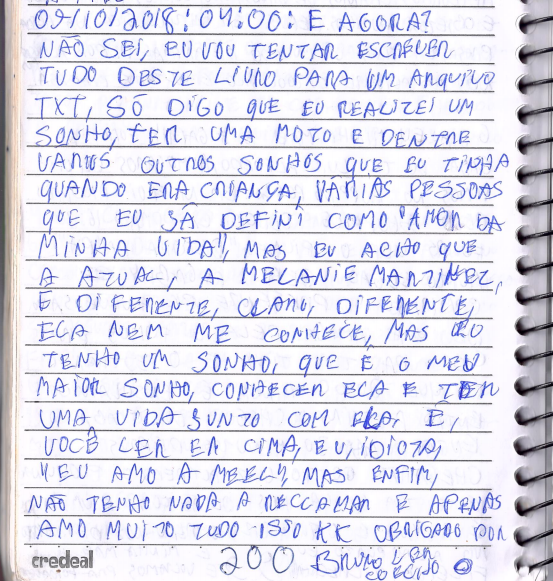 09/10/2018: 04:00: E AGORA?
NÃO SEI, EU VOU TENTAR ESCREVER
TUDO DESTE LIVRO PARA UM ARQUIVO
TXT, SÓ DIGO QUE EU REALIZEI UM
SONHO, TER UMA MOTO E DENTRE
VARIOS OUTROS SONHOS QUE EU TINHA
QUANDO ERA CRIANÇA, VÁRIAS PESSOAS
QUE EU JÁ DEFINI COMO "AMOR DA
MINHA VIDA", MAS EU ACHO QUE
A ATUAL, A MELANIE MARTINEZ,
É DIFERENTE, CLARO, DIFERENTE,
ELA NEM ME CONHECE, MAS EU
TENHO UM SONHO, QUE É O MEU
MAIOR SONHO, CONHECER ELA E TER
UMA VIDA JUNTO COM ELA, É,
VOCÊ LER EM CIMA, EU, IDIOTA,
"EU AMO A MEEL", MAS ENFIM,
NÃO TENHO NADA A RECLAMAR E APENAS
AMO MUITO TUDO ISSO KK OBRIGADO POR
credeal 200 BRUNO LER